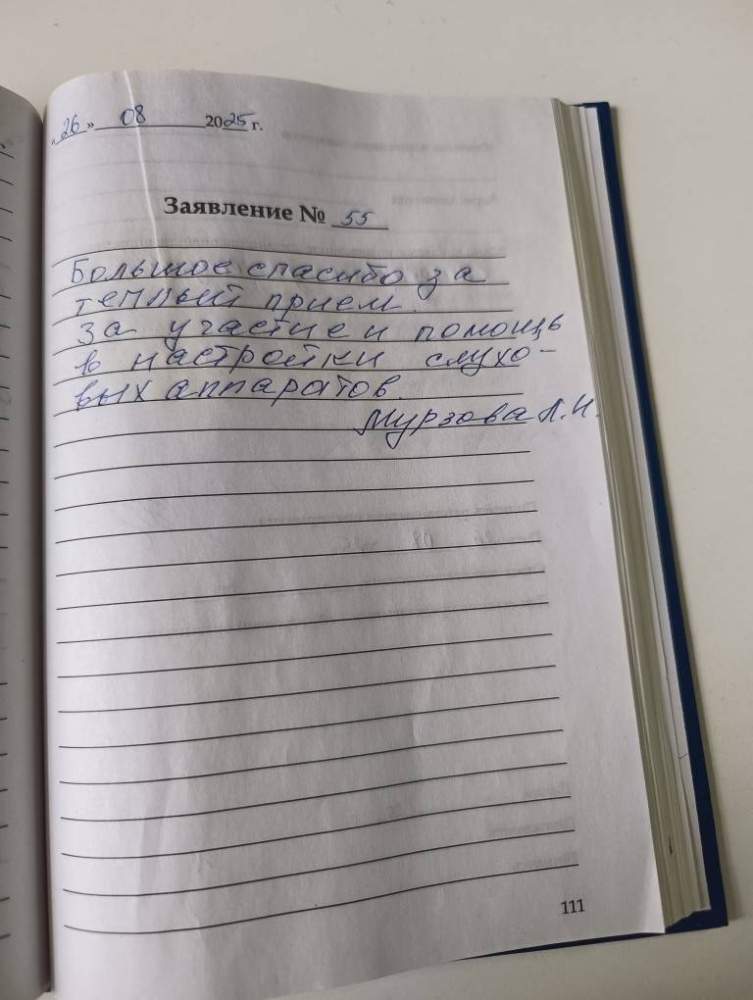 „26" 08 2025 г.
Заявление № 55
Большое спасибо за
теплый прием.
за участие и помощь
в настройки слухо-
вых аппаратов.
Мурзова Л.И.
111